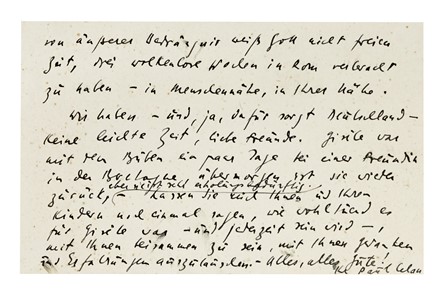 von äusserer Bedrängnis weiß Gott nicht freien
Zeit, drei wolkenlose Wochen in Rom verbracht
zu haben – in Menschennähe, in Ihrer Nähe.
Wir haben – und, ja, dafür sorgt Deutschland –
keine leichte Zeit, liebe Freunde. Gisèle war
mit dem Buben ein paar Tage bei einer Freundin
in der Bretagne, übermorgen ist sie wieder
zurück, –
lassen Sie mich Ihnen und Ihren
Kindern noch einmal sagen, wie wohltuend es
für Gisèle war – und jederzeit sein wird –,
mit Ihnen beisammen zu sein, mit Ihnen Gedanken
und Erfahrungen auszutauschen. – Alles, alles Gute!
Ihr Paul Celan